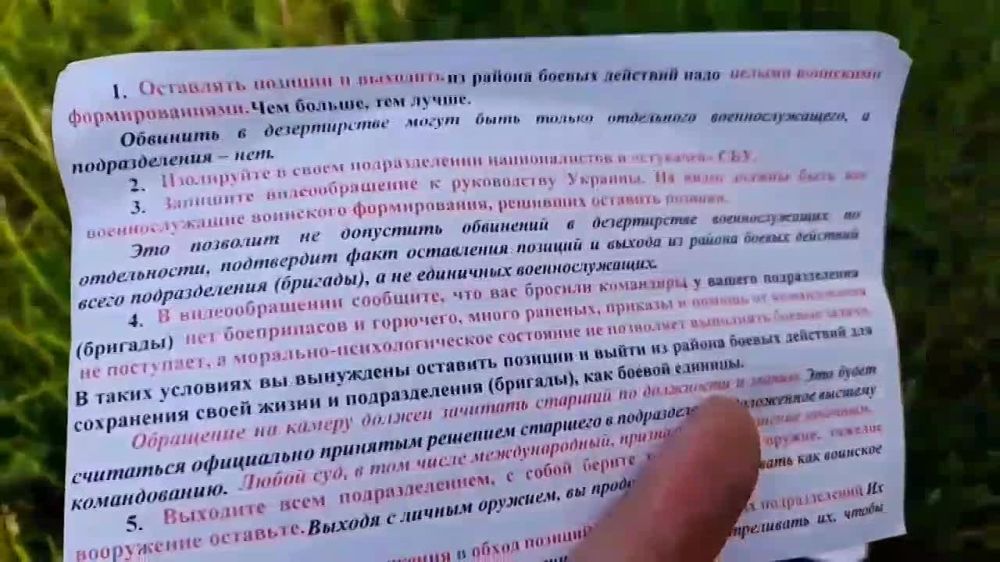 1. Оставлять позиции и выходить из района боевых действий надо целыми воинскими
формированиями. Чем больше, тем лучше.
Обвинить в дезертирстве могут быть только отдельного военнослужащего, а
подразделения – нет.
2. Изолируйте в своем подразделении националистов и «стукачей» СБУ.
3. Запишите видеообращение к руководству Украины. На видео должны быть все
военнослужащие воинского формирования, решивших оставить позиции.
Это позволит не допустить обвинений в дезертирстве военнослужащих по
отдельности, подтвердит факт оставления позиций и выхода из района боевых действий
всего подразделения (бригады), а не единичных военнослужащих.
4. В видеообращении сообщите, что вас бросили командиры у вашего подразделения
(бригады) нет боеприпасов и горючего, много раненых, приказы и помощь от командования
не поступает, а морально-психологическое состояние не позволяет выполнять боевые задачи.
В таких условиях вы вынуждены оставить позиции и выйти из района боевых действий для
сохранения своей жизни и подразделения (бригады), как боевой единицы.
Обращение на камеру должен зачитать старший по должности и званию. Это будет
считаться официально принятым решением старшего в высшему
командованию. Любой суд, в том числе международный,
5. Выходите всем подразделением, с собой берите оружие, тяжелое
вооружение оставьте. Выходя с личным оружием, вы как воинское
подразделений Их
в обход позиций их, чтобы